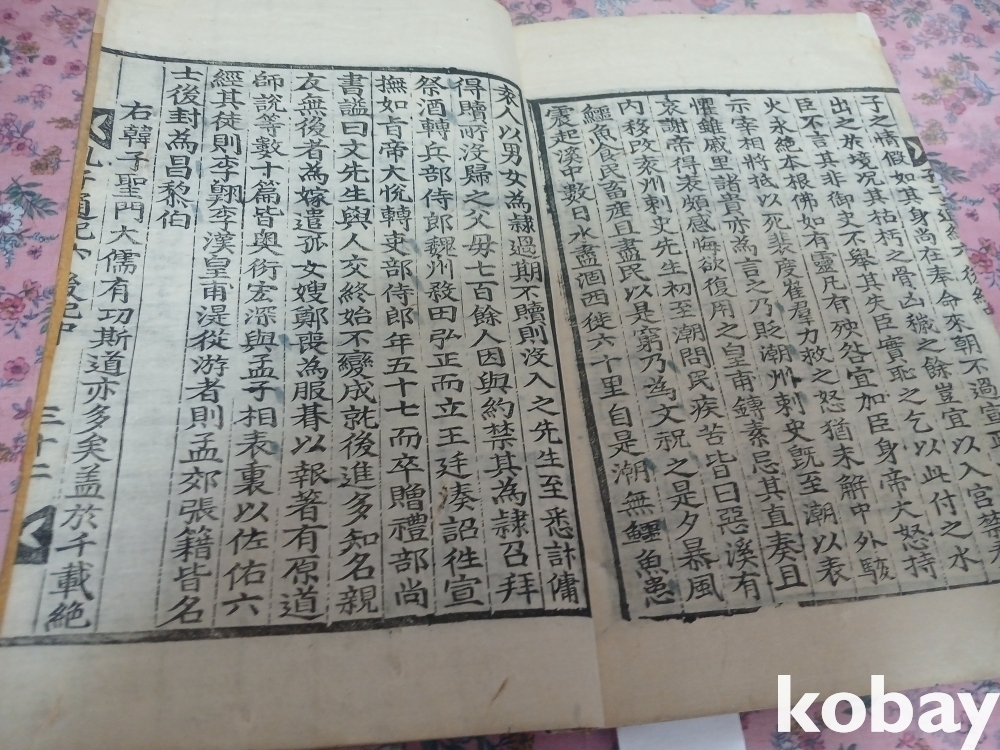 子之情假如其身尚在奉命來朝不過宣
出之於境况其枯朽之骨凶穢之餘豈宜以入宮禁
臣不言其非御史不舉其失臣實恥之乞以此付之水
火永絶本根佛如有靈凡有殃咎宜加臣身帝大怒持
示宰相將抵以死裴度崔群力救之怒猶未解中外駭
懼雖戚里諸貴亦為言之乃貶潮州刺史旣至潮以表
哀謝帝得表頗感悔欲復用之皇甫鎛素忌其直奏且
內移改袁州刺史先生初至潮問民疾苦皆曰惡溪有
鱷魚食民畜產且盡民以是窮乃為文祝之是夕暴風
震起溪中數日水盡涸西徙六十里自是潮無鱷魚患
袁人以男女為隷過期不贖則沒入之先生至悉計傭
得贖所沒歸之父母七百餘人因與約禁其為隷召拜
祭酒轉兵部侍郎魏州殺田弘正而立王廷湊詔徃宣
撫如旨帝大悅轉吏部侍郎年五十七而卒贈禮部尚
書謚曰文先生與人交終始不變成就後進多知名親
友無後者為嫁遣孤女嫂鄭喪為服朞以報著有原道
師說等數十篇皆奧衍宏深與孟子相表裏以佐佑六
經其徒則李翶李漢皇甫湜從游者則孟郊張籍皆名
士後封為昌黎伯
右韓子聖門大儒有功斯道亦多矣盖於千載絶
孔子通紀 後紀中 三十二
kobay